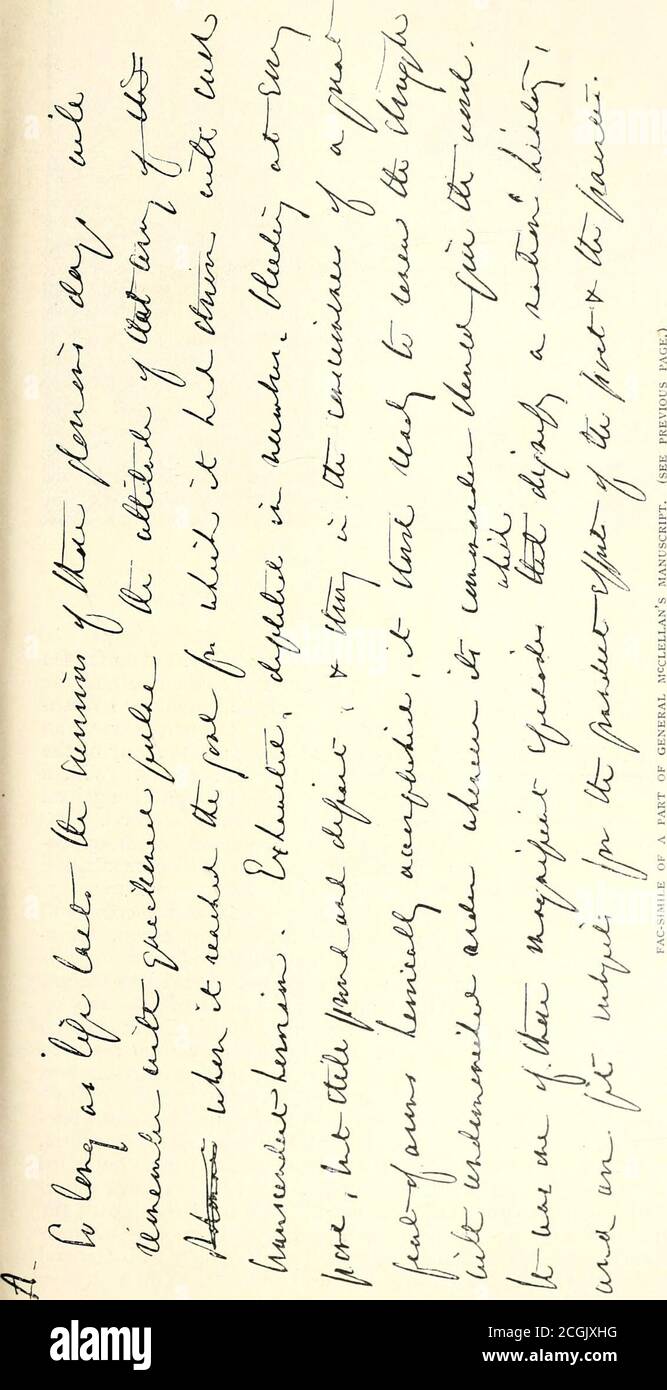 A.
So long as life lasts the survivors of those glorious days will
remember with quickened pulse the attitude of that army of the
Potomac when it reached the goal for which it had striven with such
transcendent heroism. Exhausted, depleted in numbers, bleeding at every
pore, but still proud and defiant, & strong in the consciousness of a great
feat of arms heroically accomplished, it stood ready to renew the struggle
with undiminished ardor whenever its commander should give the word.
which
It was one of those magnificent episodes that dignify a nation's history,
and are fit subjects for the grandest efforts of the poet & the painter.
FAC-SIMILE OF A PART OF GENERAL McCLELLAN'S MANUSCRIPT. (SEE PREVIOUS PAGE.)
alamy
Image ID: 2CGJXHG
www.alamy.com